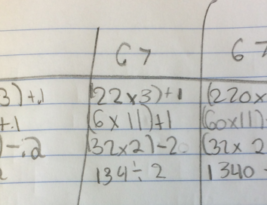 67 67
3)+.1 (22x3)+1 (220x
+.1 (6x11)+1 (60x11)
)-.2 (32x2)-2 (32x2
134÷2 1340